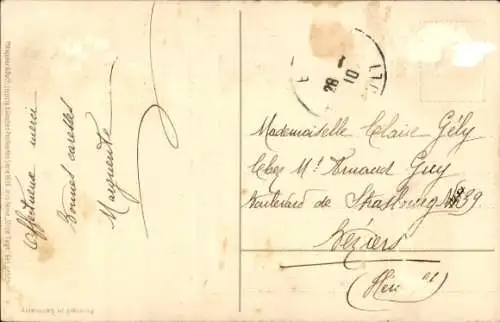 Affectueux merci
Bonnes caresses
Marguerite
28
10
Mademoiselle Claire Gély
Chez Mr Arnaud Guy
Boulevard de Strasbourg N° 39
Béziers
(Hért)
Printed in Germany